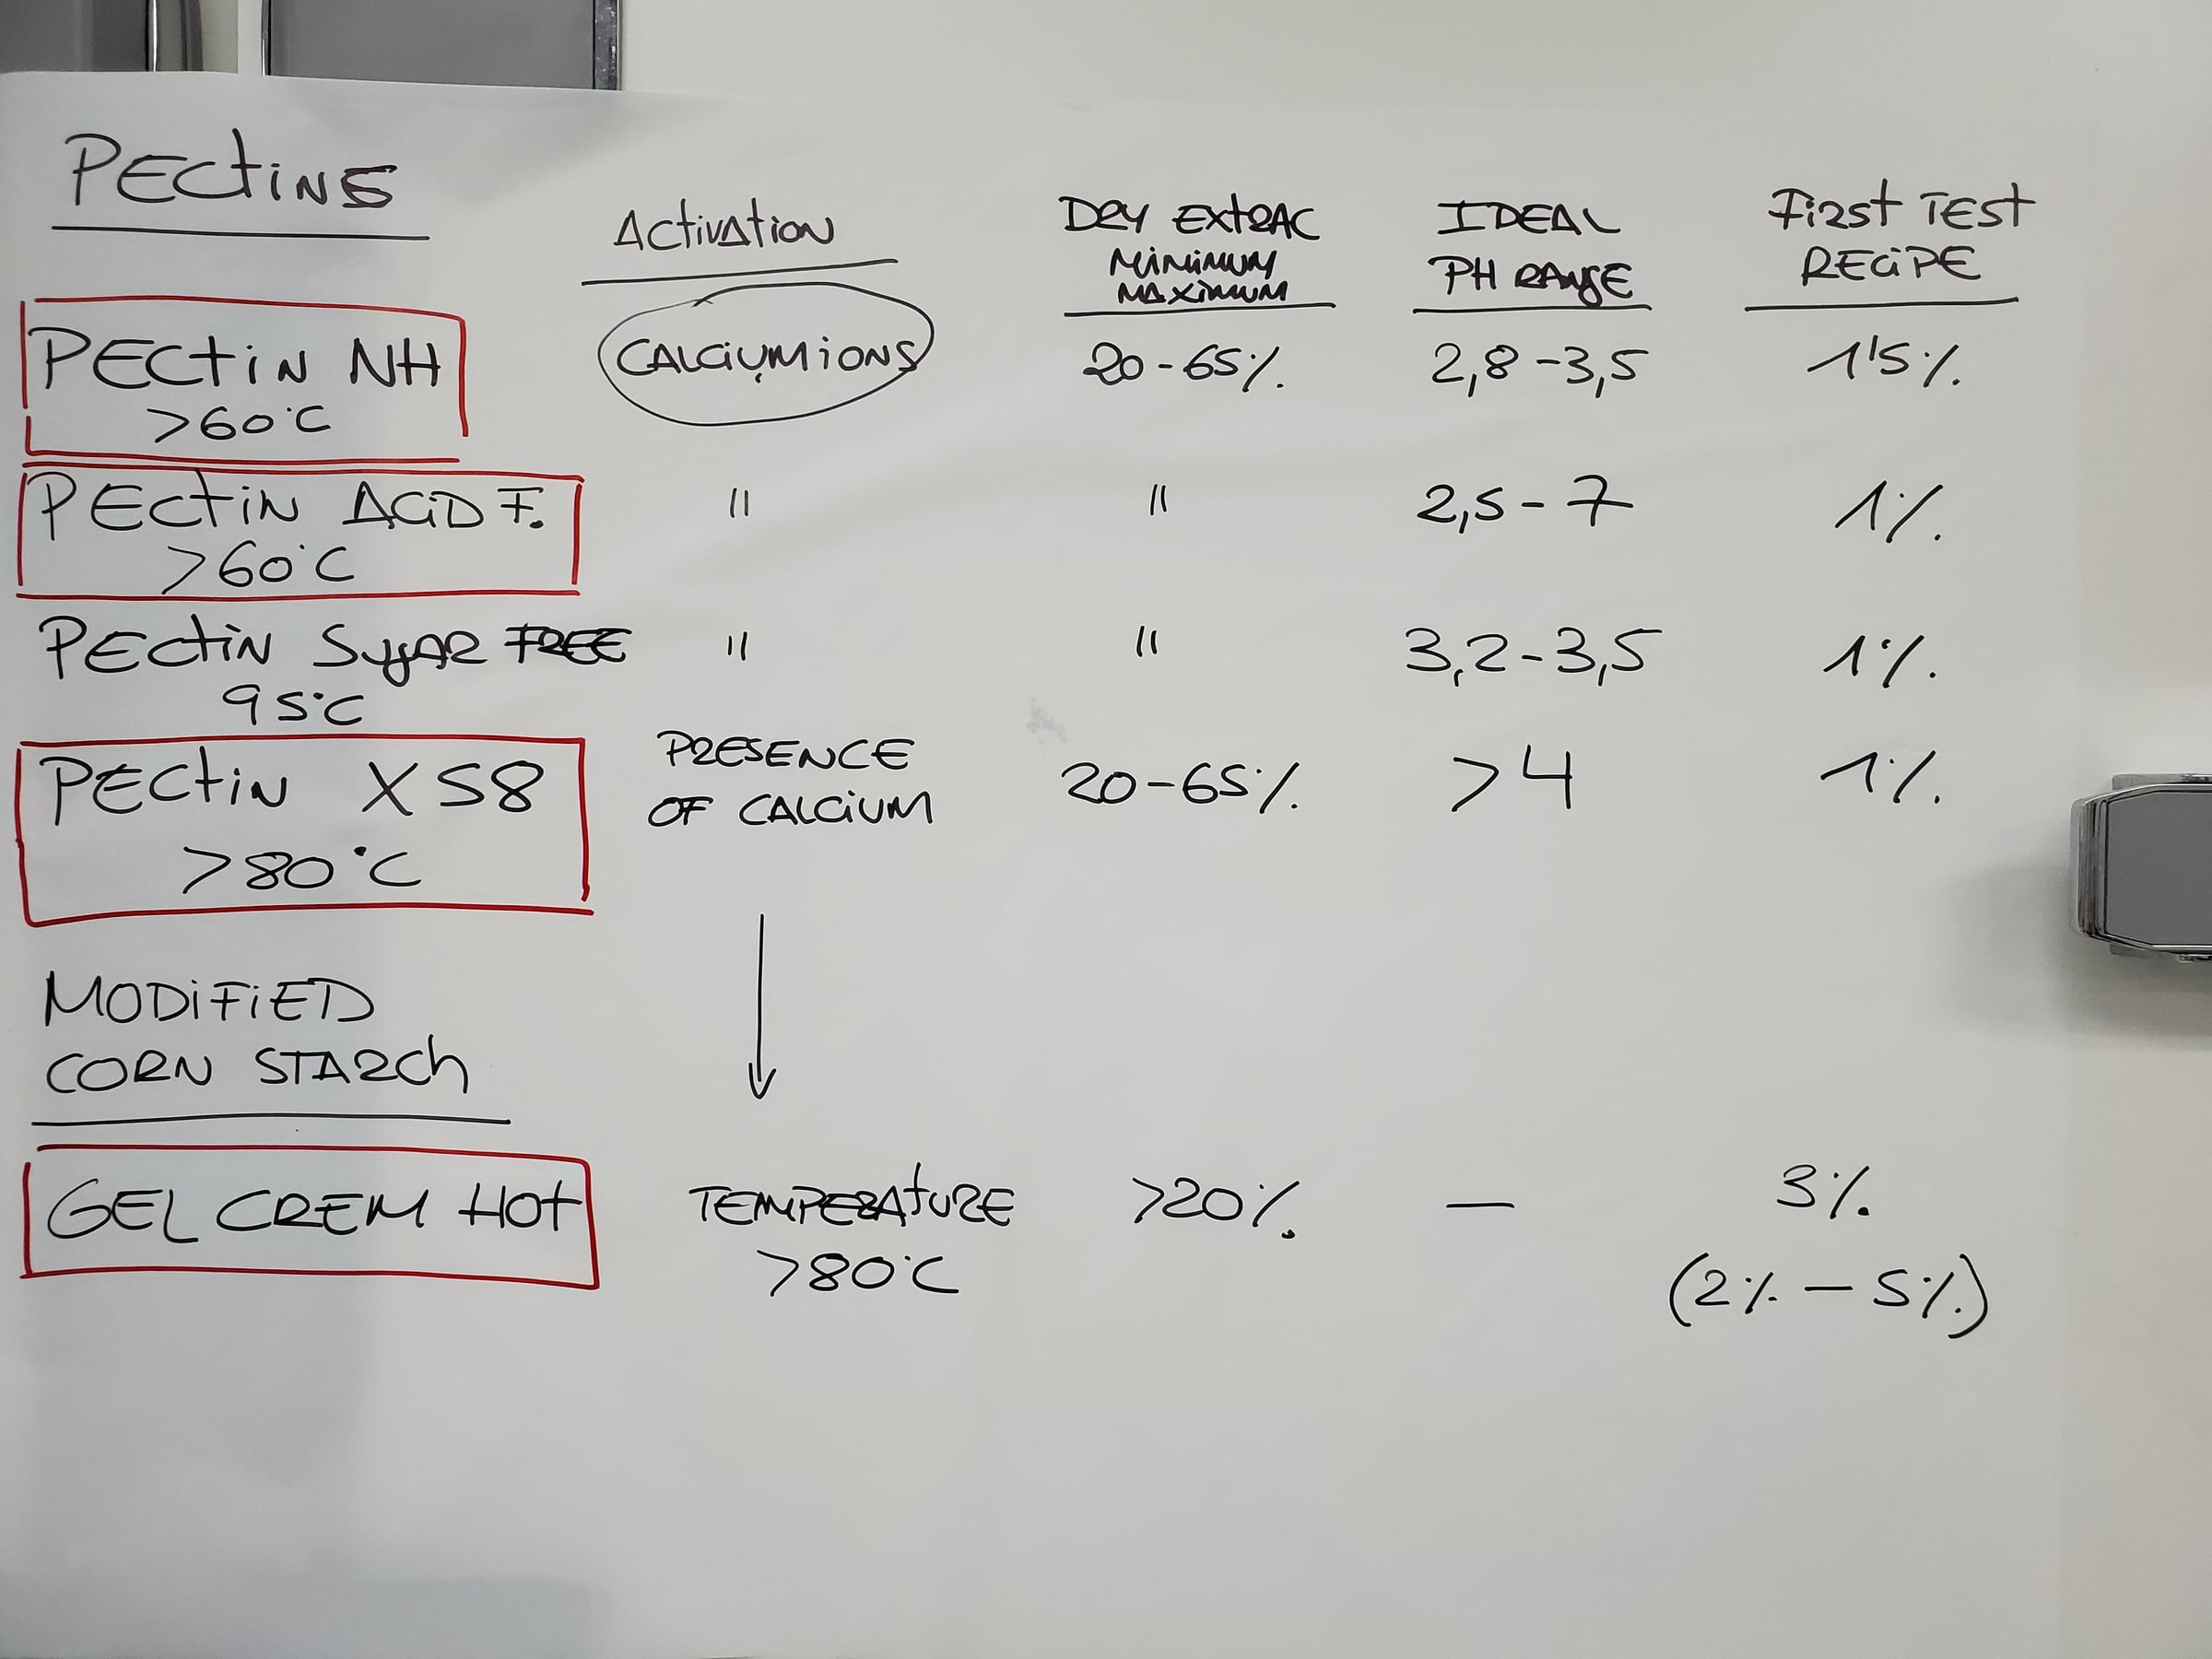 PECTINS
Activation
DRY EXTRAC
MINIMUM
MAXIMUM
IDEAL
PH RANGE
FIRST TEST
RECIPE
PECTIN NH
>60°C
CALCIUMIONS
20-65%
2,8-3,5
1'5%
PECTIN ACID F.
>60°C
"
"
2,5-7
1%
PECTIN SUGAR FREE
95°C
"
"
3,2-3,5
1%
PECTIN X58
>80°C
PRESENCE
OF CALCIUM
20-65%
>4
1%
MODIFIED
CORN STARCH
GEL CREM HOT
TEMPERATURE
>80°C
>20%
—
3%
(2% - 5%)